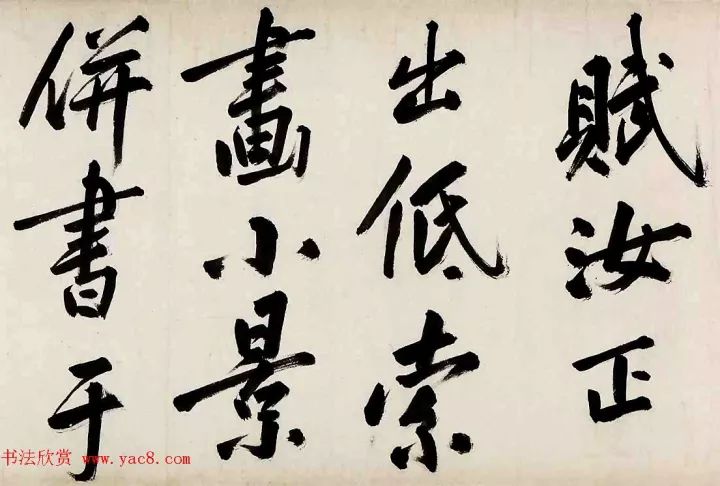 賦汝正
出低索
畫小景
併書于
书法欣赏 www.yac8.com